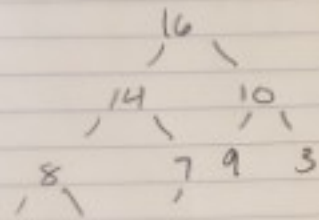 16
14 10
8 7 9 3